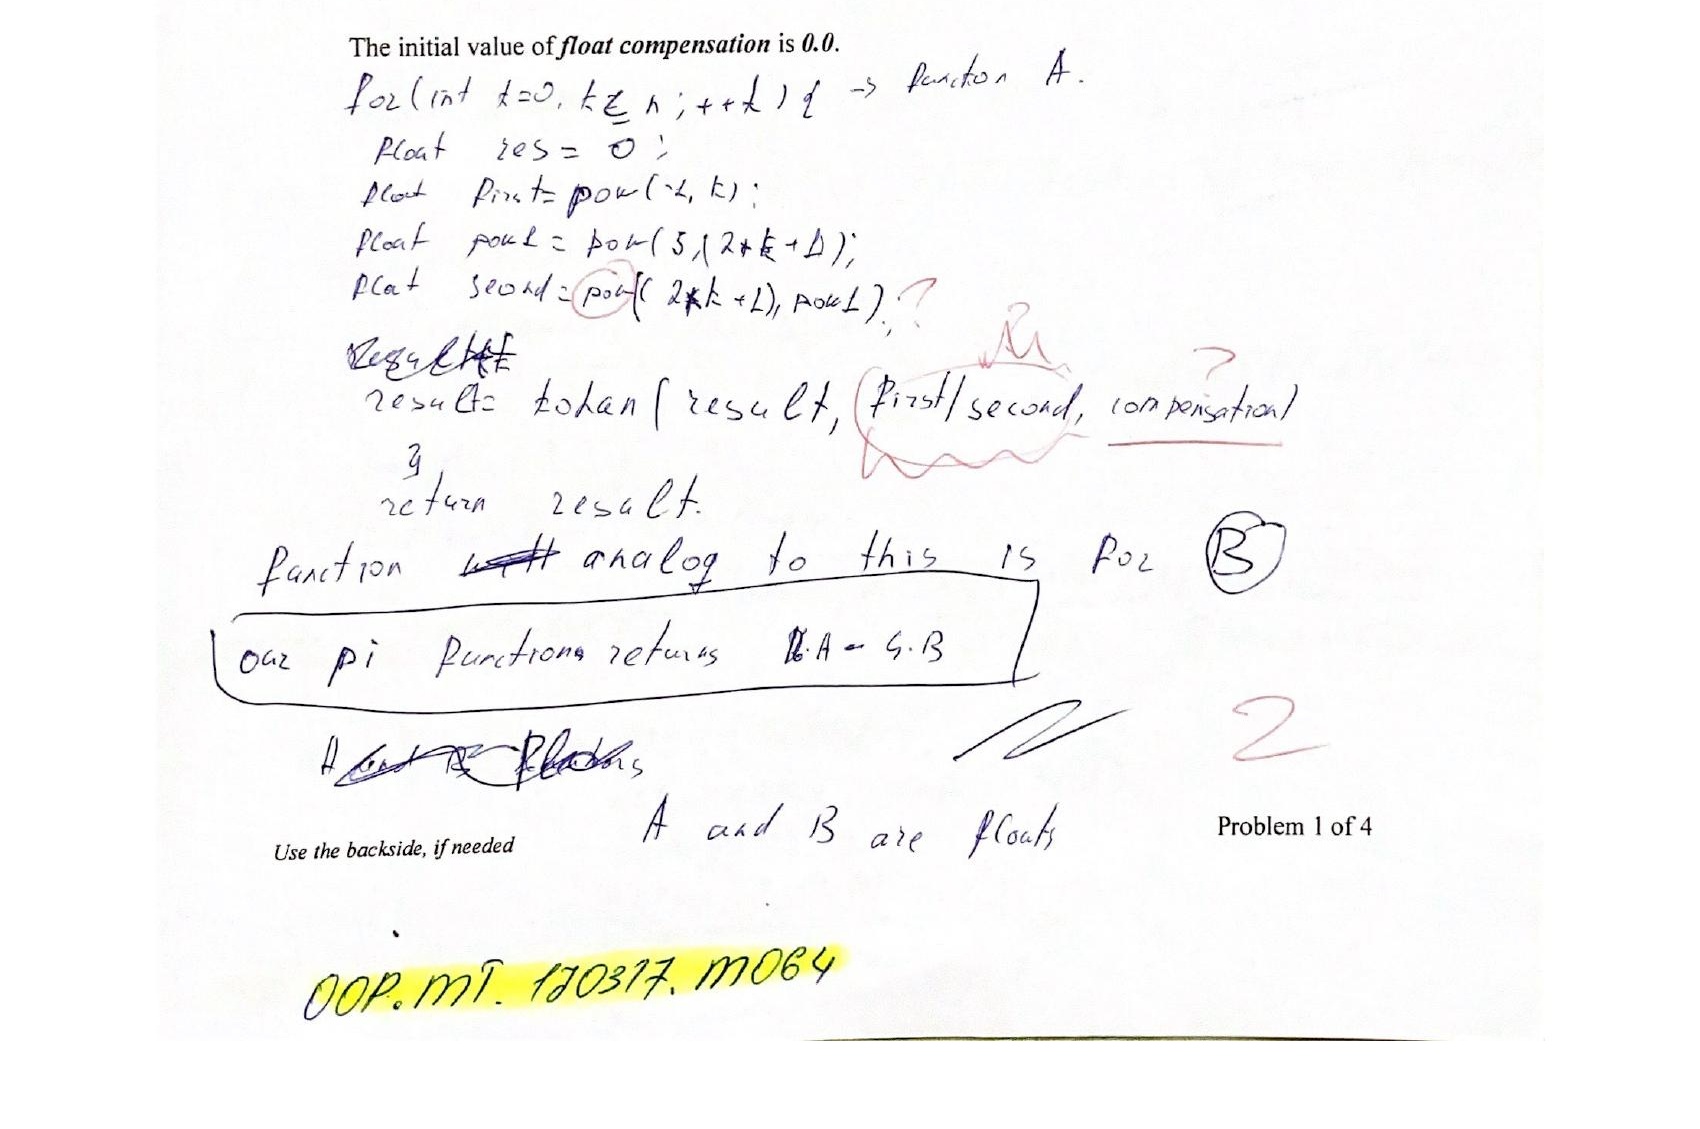 The initial value of float compensation is 0.0.
for(int k=0, k≤n ; ++k) { -> function A.
float res = 0;
float first= pow(-1, k);
float pow1 = pow(5,(2*k+1);
float second= pow((2*k+1), pow1); ?
result= kohan(result, first/second, compensation)
?
}
return result.
function analog to this is for B
our pi functions returns A - 4.B
2
A and B are floats
Use the backside, if needed
Problem 1 of 4
OOP.MT. 170317. M064